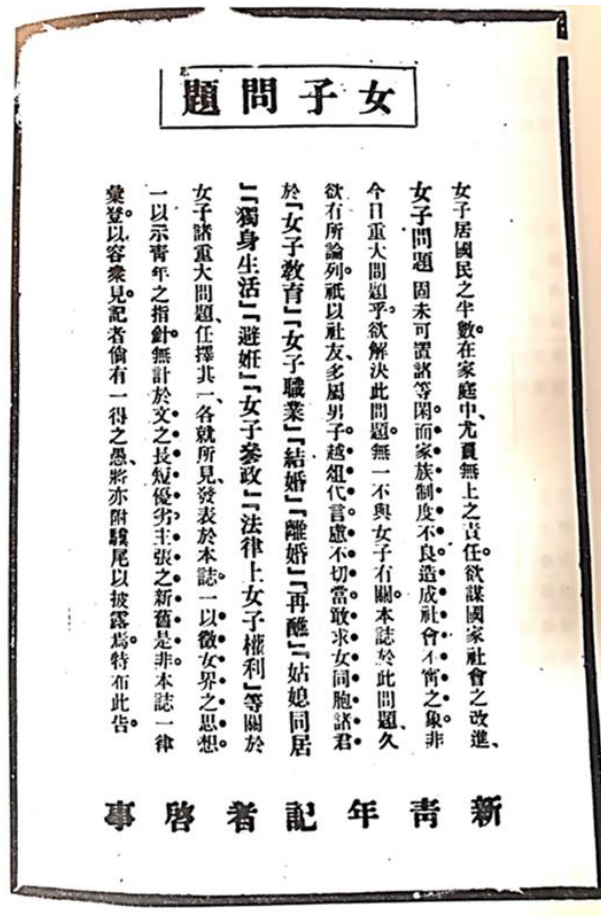 女子問題
女子居國民之半數。在家庭中、尤負無上之責任。欲謀國家社會之改進、
女子問題固未可置諸等閑。而家族制度不良。造成社會不甯之象。非
今日重大問題乎。欲解決此問題。無一不與女子有關。本誌於此問題、久
欲有所論列。祇以社友、多屬男子。越俎代言。慮不切當。敢求女同胞諸君
於「女子教育」「女子職業」「結婚」「離婚」「再醮」「姑媳同居
」「獨身生活」「避妊」「女子參政」「法律上女子權利」等關於
女子諸重大問題、任擇其一、各就所見、發表於本誌。一以徵女界之思想。
一以示青年之指針。無計於文之長短優劣。主張之新舊是非。本誌一律
彙登。以容衆見。記者倘有一得之愚、將亦附驥尾以披露焉。特布此告。
新青年記者啓事